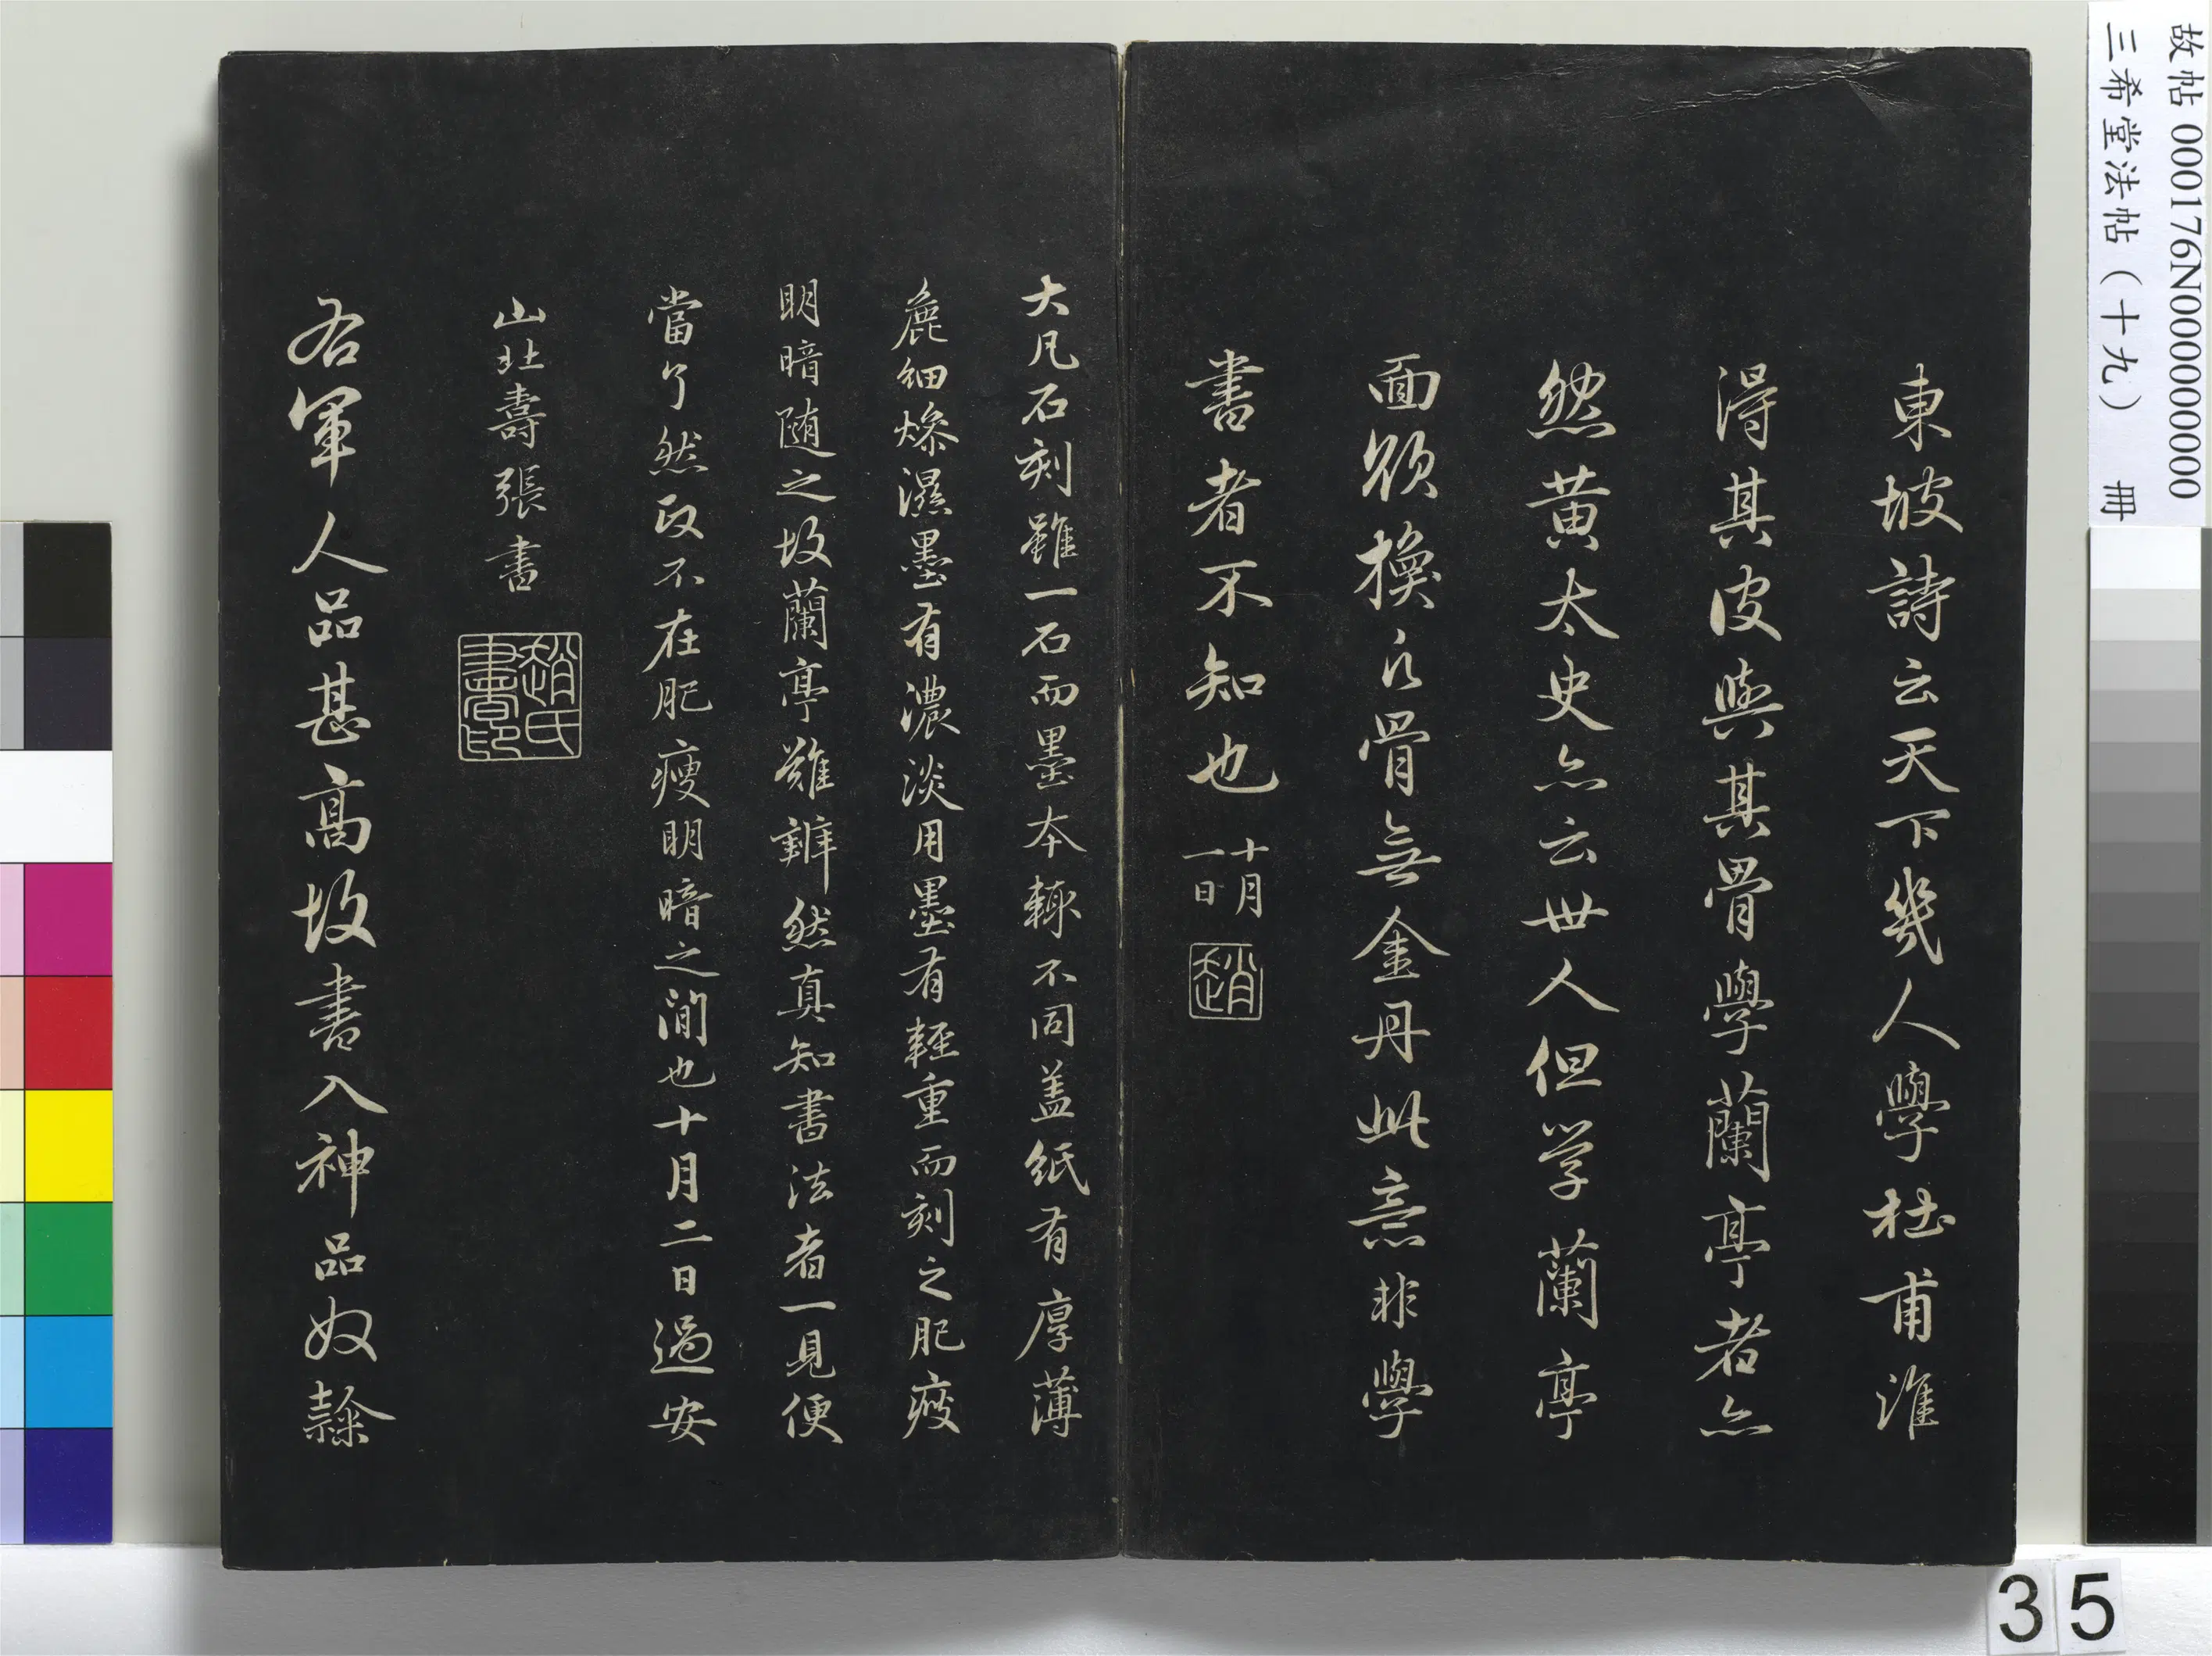 東坡詩云天下幾人學杜甫誰
得其皮與其骨學蘭亭者亦
然黃太史亦云世人但学蘭亭
面欲換凡骨無金丹此意非學
書者不知也
十月
一日
趙
大凡石刻雖一石而墨本輒不同蓋紙有厚薄
麁細燥濕墨有濃淡用墨有輕重而刻之肥瘦
明暗随之故蘭亭難辨然真知書法者一見便
當了然政不在肥瘦明暗之間也十月二日過安
山北壽張書
趙氏書印
右軍人品甚高故書入神品奴隸
故帖 000176N000000000
三希堂法帖（十九） 冊
35